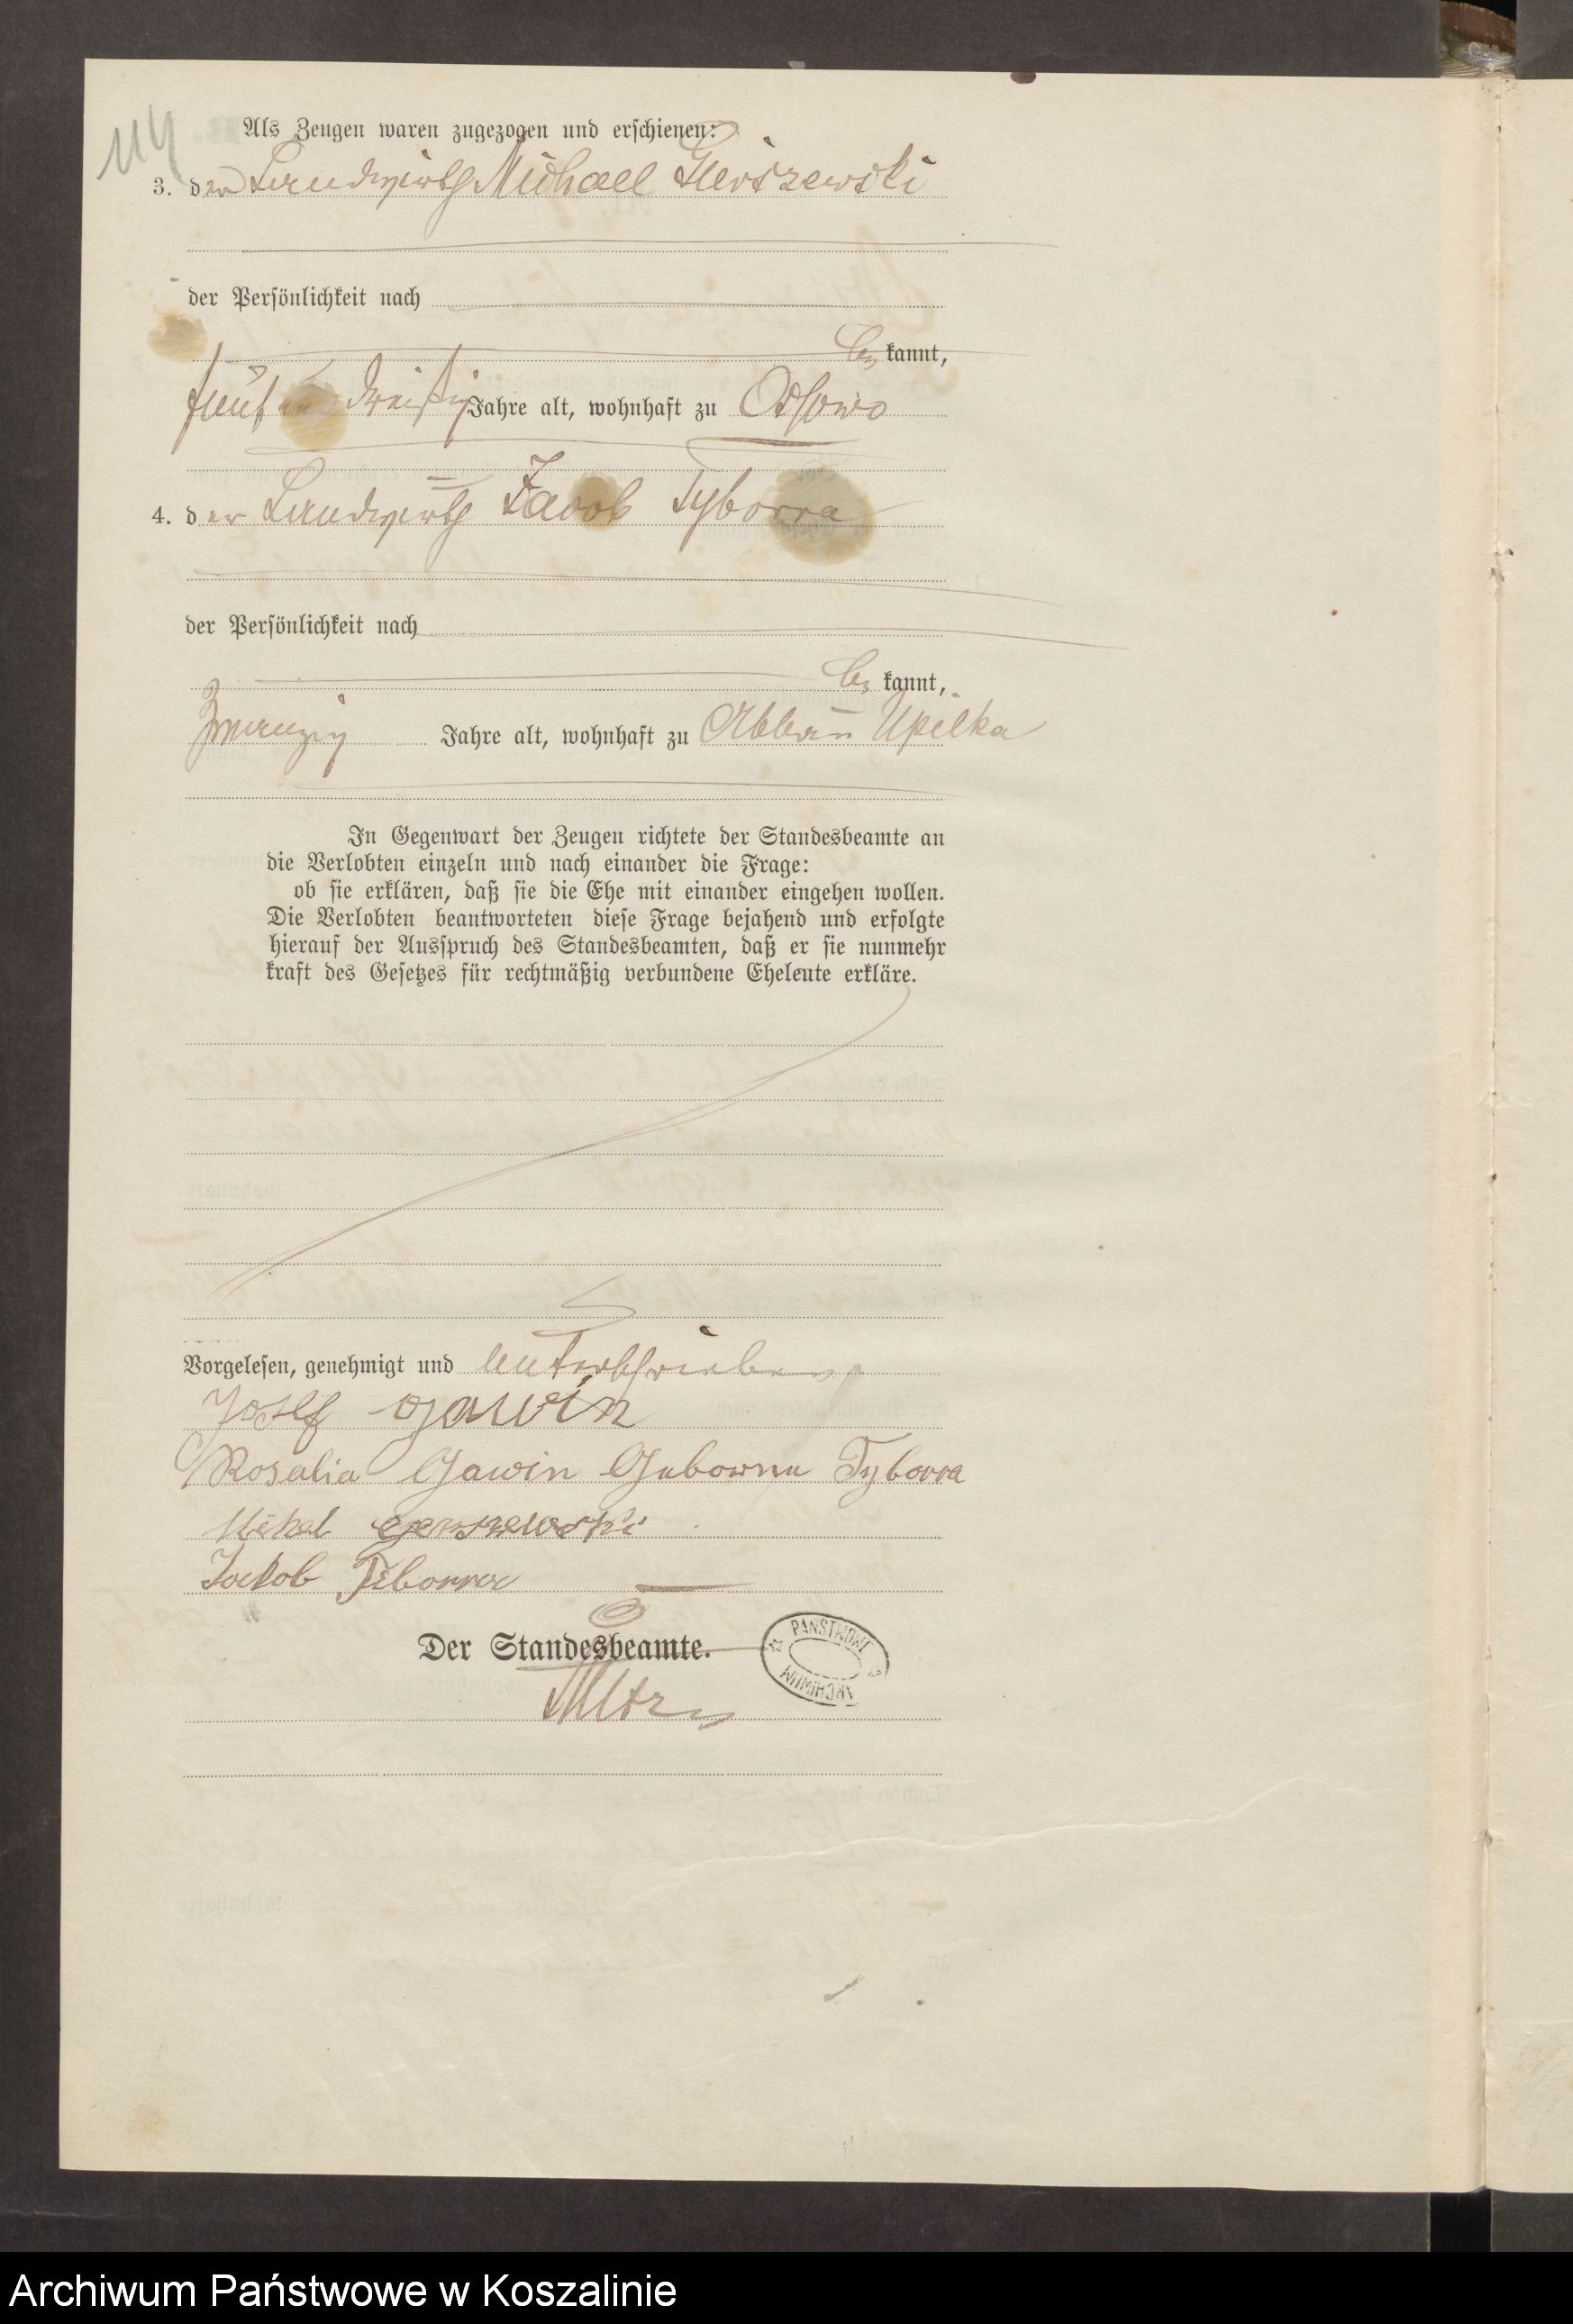 114
Als Zeugen waren zugezogen und erschienen:
3. der Landwirth Michael Gierszewski
der Persönlichkeit nach
be kannt,
fünf und dreißig Jahre alt, wohnhaft zu Ossowo
4. der Landwirth Jacob Tyborra
der Persönlichkeit nach
be kannt,
zwanzig Jahre alt, wohnhaft zu Abbau Upilka
In Gegenwart der Zeugen richtete der Standesbeamte an
die Verlobten einzeln und nach einander die Frage:
ob sie erklären, daß sie die Ehe mit einander eingehen wollen.
Die Verlobten beantworteten diese Frage bejahend und erfolgte
hierauf der Ausspruch des Standesbeamten, daß er sie nunmehr
kraft des Gesetzes für rechtmäßig verbundene Eheleute erkläre.
Vorgelesen, genehmigt und unterschrieben
Josef Gawin
Rosalia Gawin Geborne Tyborra
Michel Gerszewski
Jackob Tiborra
Der Standesbeamte.
PAŃSTWOWE
ARCHIWUM
Archiwum Państwowe w Koszalinie